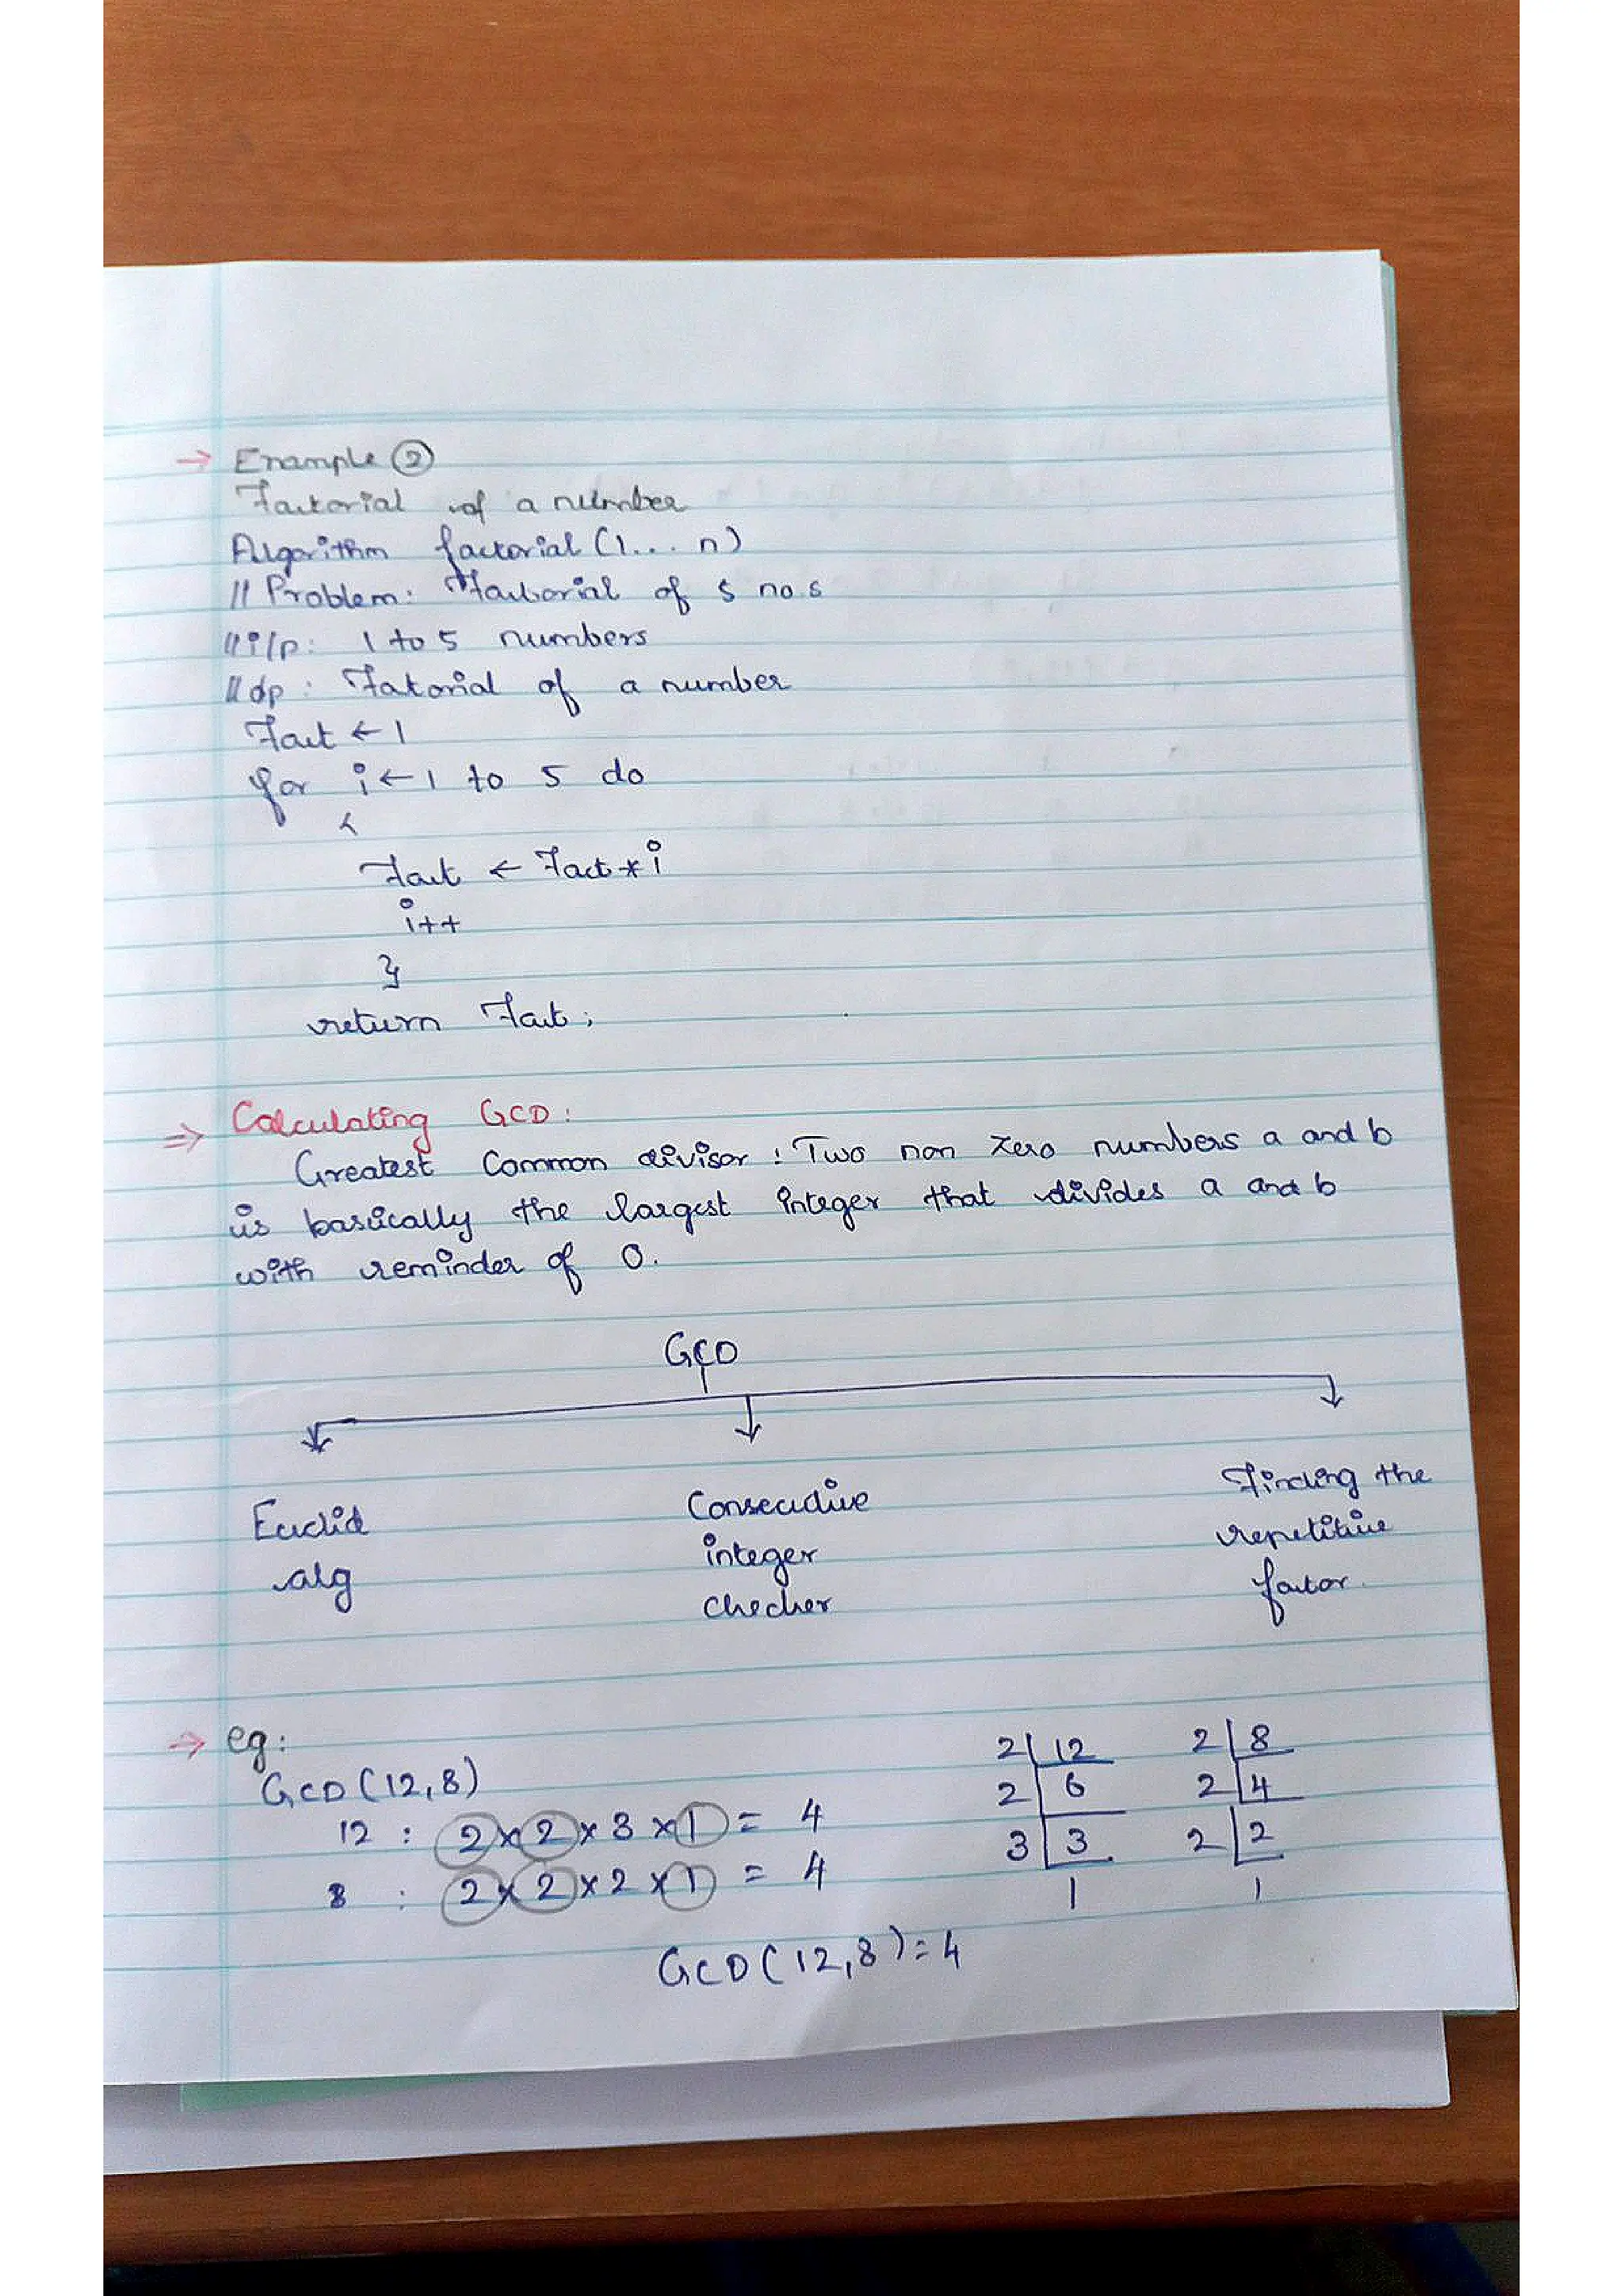 → Example ②
Factorial of a number
Algorithm factorial (1... n)
// Problem: Factorial of 5 no.s
// i/p: 1 to 5 numbers
// o/p: Fatorial of a number
Fact ← 1
for i ← 1 to 5 do
{
Fact ← Fact * i
i++
}
return Fact;
⇒ Calculating GCD:
Greatest Common divisor: Two non zero numbers a and b
is basically the largest integer that divides a and b
with reminder of 0.
GCD
Euclid alg
Consecutive integer checker
Finding the repetitive factor.
→ eg:
GCD (12,8)
12 : 2 × 2 × 3 × 1 = 4
8 : 2 × 2 × 2 × 1 = 4
2 | 12
2 | 6
3 | 3
1
2 | 8
2 | 4
2 | 2
1
GCD (12,8) = 4